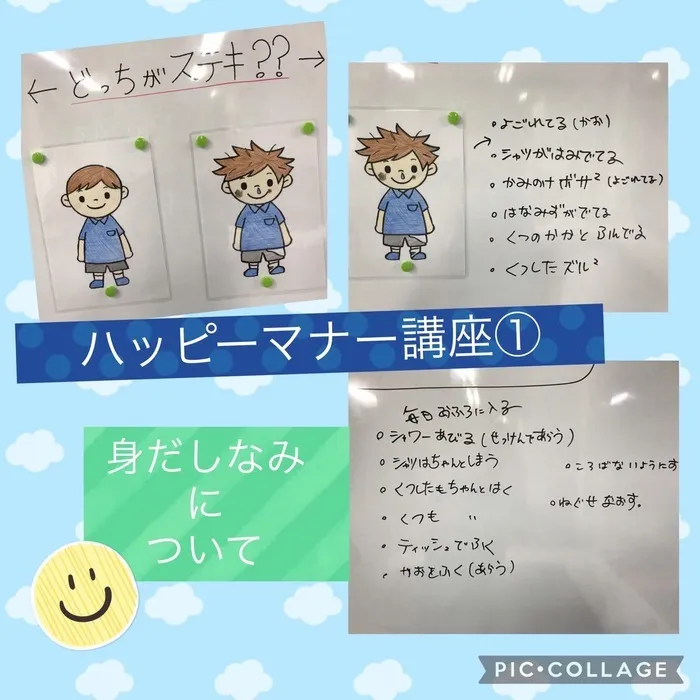 ← どっちがステキ?? →
・よごれてる(かお)
・シャツがはみでてる
・かみのけボサ² (よごれてる)
・はなみずがでてる
・くつのかかとふんでる
・くつしたズル²
ハッピーマナー講座①
身だしなみ
に
ついて
毎日おふろに入る
・シャワーあびる(せっけんであらう)
・シャツはちゃんとしまう
・くつしたもちゃんとはく
・くつも 〃
・ティッシュでふく
・かおをふく(あらう)
・ころばないようにす
・ねぐせなおす。
PIC•COLLAGE